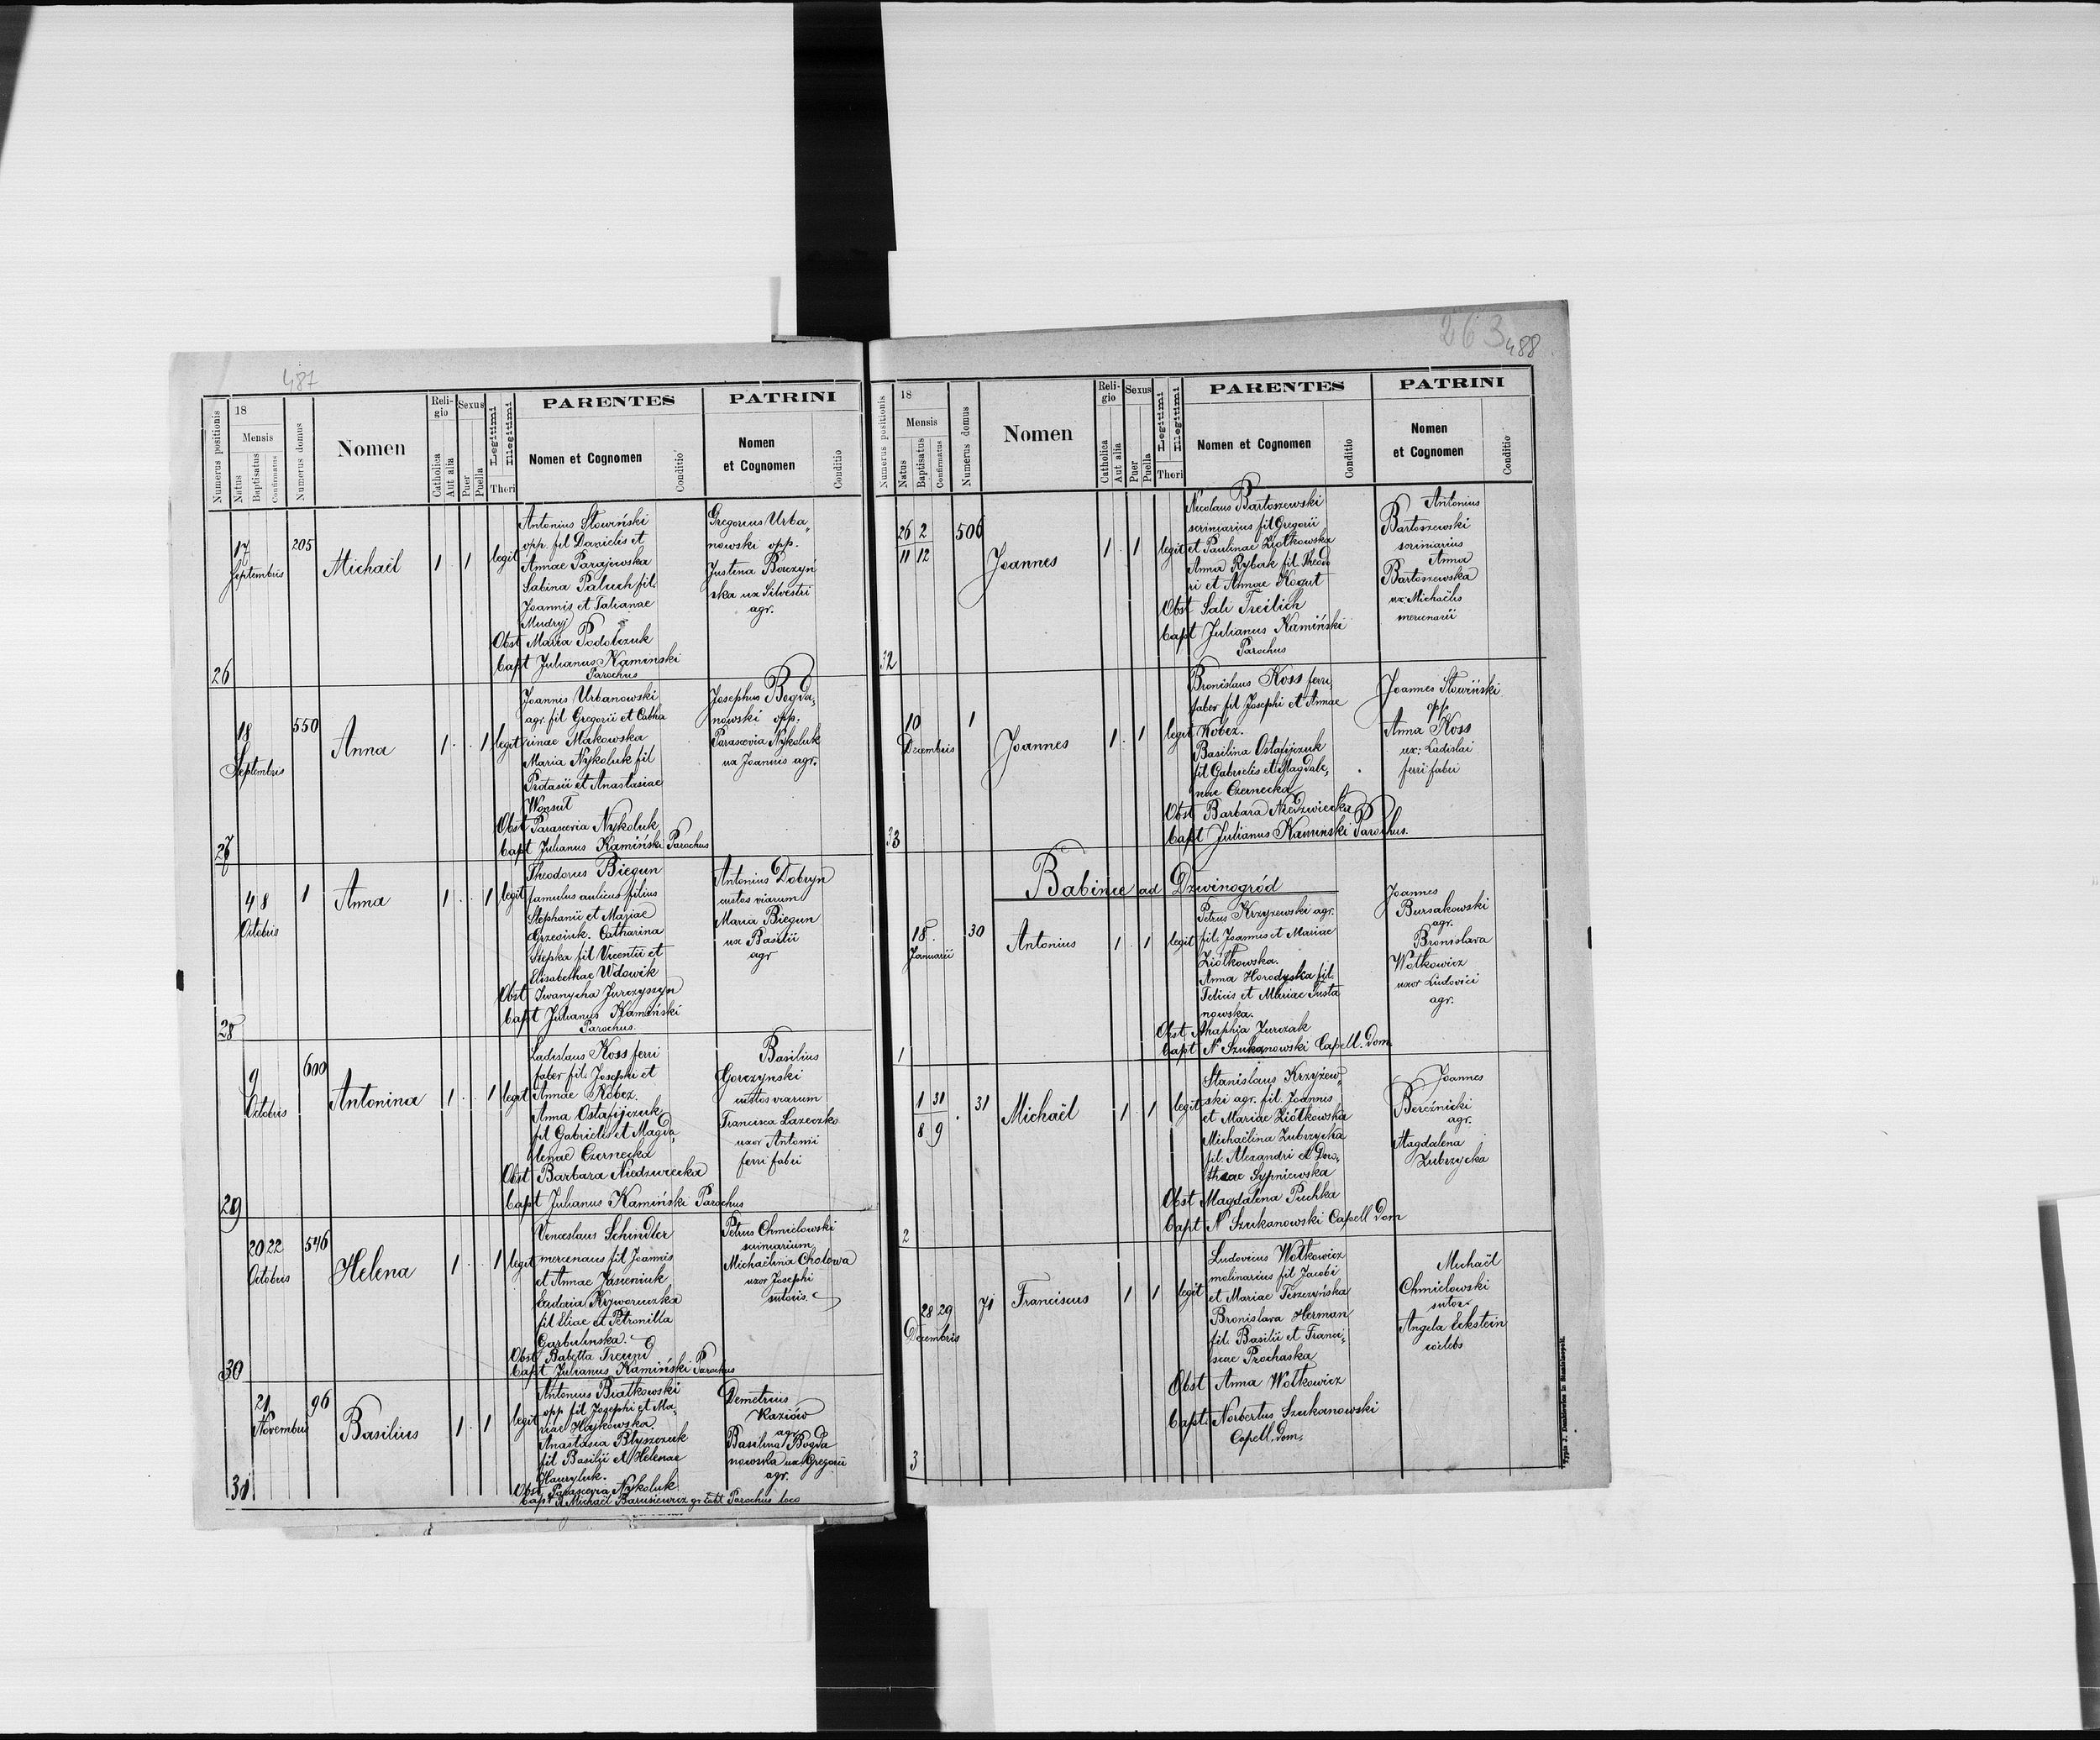 487
18
Numerus positionis
Mensis
Natus
Baptisatus
Confirmatus
Numerus domus
Nomen
Religio
Catholica
Aut alia
Sexus
Puer
Puella
Legitimi
Illegitimi
Thori
PARENTES
Nomen et Cognomen
Conditio
PATRINI
Nomen
et Cognomen
Conditio
26
17
Septembris
205
Michaël
1 1
legit
Antonius Słowiński
opp. fil Danielis et
Annae Parajewska
Sabina Paluch fil.
Joannis et Tatianae
Mudryj
Obst Maria Podolczuk
bapt Julianus Kaminski
Parochus
Gregorius Urba„
nowski opp.
Justina Bouczyń
ska ux Silvestri
agr.
27
18
Septembris
550
Anna
1 1
legit
Joannis Urbanowski
agr. fil Gregorii et Catha
rinae Makowska
Maria Nykoluk fil
Protasii et Anastasiae
Wonsul
Obst Parascevia Nykoluk
bapt Julianus Kamiński Parochus
Josephus Bogda„
nowski opp.
Parascevia Nykoluk
ux Joannis agr.
28
4 8
Octobris
1
Anna
1 1
legit
Theodorus Biegun
famulus aulicus filius
Stephanii et Mariae
Grzesiuk. Catharina
Stepka fil Vicentii et
Elisabethae Wdowik
Obst Iwanycha Jurczyszyn
bapt Julianus Kamiński
Parochus.
Antonius Dobryn
custos viarum
Maria Biegun
ux Basilii
agr
29
9
Octobris
600
Antonina
1 1
legit
Ladislaus Koss ferri
faber fil. Josephi et
Annae Kobez.
Anna Ostafijczuk
fil Gabrielis et Magda„
lenae Czernecka
Obst Barbara Niedzwiecka
bapt Julianus Kamiński Parochus
Basilius
Gorczynski
custos viarum
Francisca Lazeczko
uxor Antoni
ferri fabri
30
20 22
Octobris
546
Helena
1 1
legit
Venceslaus Schindler
mercenarius fil Joannis
et Annae Jasieniuk
Eudoxia Kryworuczka
fil Eliae et Petronilla
Garbulinska.
Obst Babetta Treund
bapt Julianus Kamiński Parochus
Petrus Chmielowski
scriniarium
Michaëlina Cholewa
uxor Josephi
sutoris.
31
21
Novembris
96
Basilius
1 1
legit
Antonius Białkowski
opp fil Josephi et Ma„
riae Hajkowska
Anastasia Błyszczuk
fil Basilii et Helenae
Hawryluk.
Obst Parascevia Nykoluk
bapt Michaël Barusiewicz gr. cath Parochus loco
Demetrius
Kaziów
agr
Basilina Bogda
nowska ux Gregorii
agr.
263
488
18
Numerus positionis
Mensis
Natus
Baptisatus
Confirmatus
Numerus domus
Nomen
Religio
Catholica
Aut alia
Sexus
Puer
Puella
Legitimi
Illegitimi
Thori
PARENTES
Nomen et Cognomen
Conditio
PATRINI
Nomen
et Cognomen
Conditio
32
26 2
11 12
506
Joannes
1 1
legit
Nicolaus Bartoszewski
scriniarius fil Gregorii
et Paulinae Ziółkowska
Anna Rybak fil. Theodo
ri et Annae Kogut
Obst Sali Treilich
bapt Julianus Kamiński
Parochus
Antonius
Bartoszewski
scriniarius
Anna
Bartoszewska
ux. Michaëlis
mercenarii
33
10
Decembris
1
Joannes
1 1
legit
Bronislaus Koss ferri„
faber fil Josephi et Annae
Kobez.
Basilina Ostafijczuk
fil Gabrielis et Magdale„
nae Czernecka
Obst Barbara Niedzwiecka
bapt Julianus Kaminski Parochus.
Joannes Słowiński
opp
Anna Koss
ux: Ladislai
ferri fabri
Babince ad Dzwinogród
1
18.
Januarii
30
Antonius
1 1
legit
Petrus Krzyzewski agr.
fil. Joannis et Mariae
Ziółkowska.
Anna Horodyska fil.
Felicis et Mariae Tusta
nowska.
Obst Ahaphia Jurczak
bapt N Szukanowski Capell. Dom.
Joannes
Bursakowski
agr.
Bronislava
Wołkowicz
uxor Ludovici
agr.
2
1 31
8 9
31
Michaël
1 1
legit
Stanislaus Krzyżew„
ski agr. fil. Joannis
et Mariae Ziółkowska
Michaëlina Zubrzycka
fil. Alexandri et Doro„
theae Sypniewska
Obst Magdalena Puchka
bapt N Szukanowski Capell Dom
Joannes
Bereżnicki
agr.
Magdalena
Zubrzycka
3
28 29
Decembris
71
Franciscus
1 1
legit
Ludovicus Wołkowicz
molinarius fil Jacobi
et Mariae Teszczyńska
Bronislava Herman
fil. Basilii et Franci„
scae Prochaska
Obst Anna Wołkowicz
bapt. Norbertus Szukanowski
Capell. Dom.
Michaël
Chmielowski
sutor.
Angela Eckstein
coelebs
Typis J. Dankiewicz in Stanislaopoli.